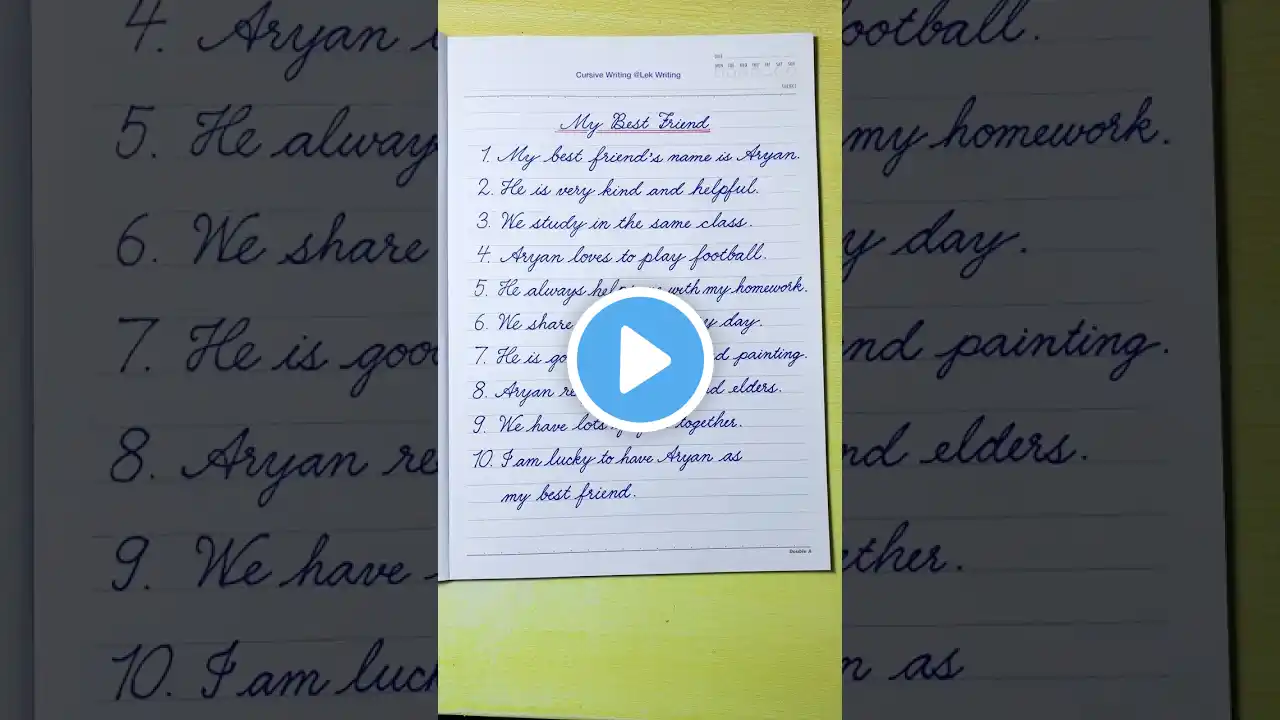 Cursive Writing @Lek Writing
My Best Friend
1. My best friend's name is Aryan.
2. He is very kind and helpful.
3. We study in the same class.
4. Aryan loves to play football.
5. He always with my homework.
6. We share day.
7. He is painting.
8. Aryan elders.
9. We have lots together.
10. I am lucky to have Aryan as
my best friend.
Double A